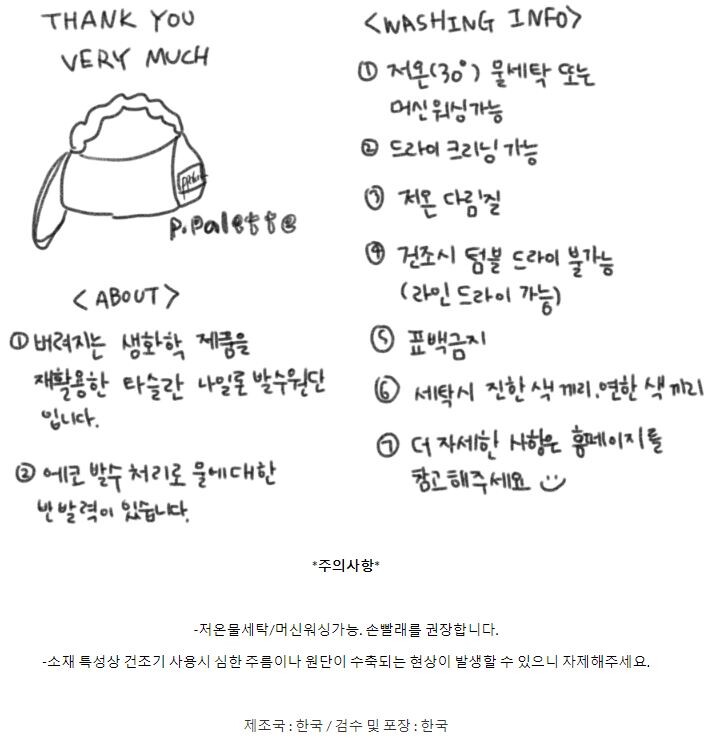 THANK YOU
VERY MUCH
P.Palette
<ABOUT>
① 버려지는 생화학 제품을
재활용한 타슬란 나일론 발수원단
입니다.
② 에코 발수 처리로 물에 대한
반발력이 있습니다.
<WASHING INFO>
① 저온(30°) 물세탁 또는
머신워싱가능
② 드라이 크리닝 가능
③ 저온 다림질
④ 건조시 텀블 드라이 불가능
(라인 드라이 가능)
⑤ 표백금지
⑥ 세탁시 진한색끼리, 연한색끼리
⑦ 더 자세한 사항은 홈페이지를
참고해주세요
*주의사항*
-저온물세탁/머신워싱가능. 손빨래를 권장합니다.
-소재 특성상 건조기 사용시 심한 주름이나 원단이 수축되는 현상이 발생할 수 있으니 자제해주세요.
제조국 : 한국 / 검수 및 포장 : 한국